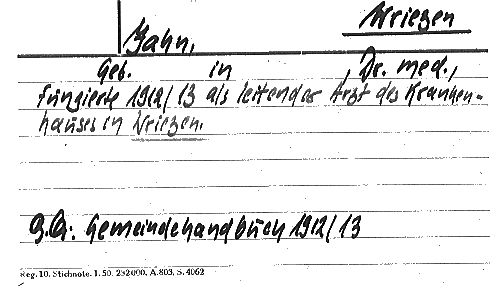 Wriezen
Hahn,
Geb. in , Dr. med.,
fungierte 1912/13 als leitender Arzt des Kranken-
hauses in Wriezen.
G.A: Gemeindehandbuch 1912/13
Reg. 10. Stichnote. 1. 50. 232000. A.803. S. 4062